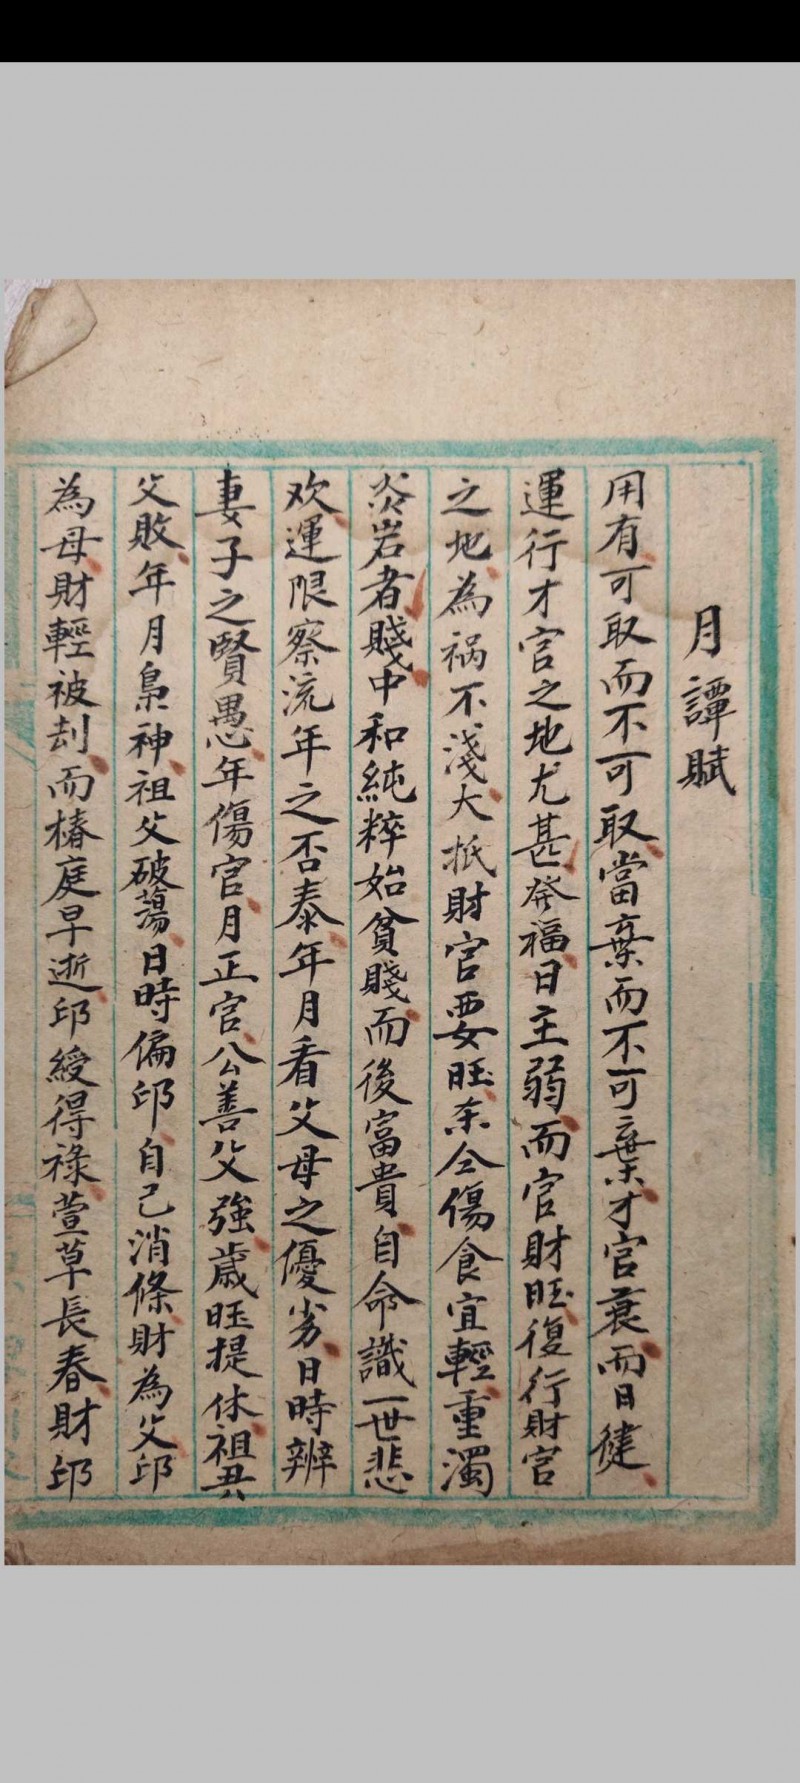 月譚賦
用有可取而不可取當棄而不可棄才官衰而日健
運行才官之地尤甚發福日主弱而官財旺復行財官
之地為禍不淺大抵財官要旺東仝傷食宜輕重濁
炎岩者賤中和純粹始貧賤而後富貴自命識一世悲
欢運限察流年之否泰年月看父母之優劣日時辨
妻子之賢愚年傷官月正官公善父強歲旺提休祖丑
父敗年月梟神祖父破蕩日時偏邱自己消條財為父邱
為母財輕被刦而椿庭早逝邱綬得祿萱草長春財邱